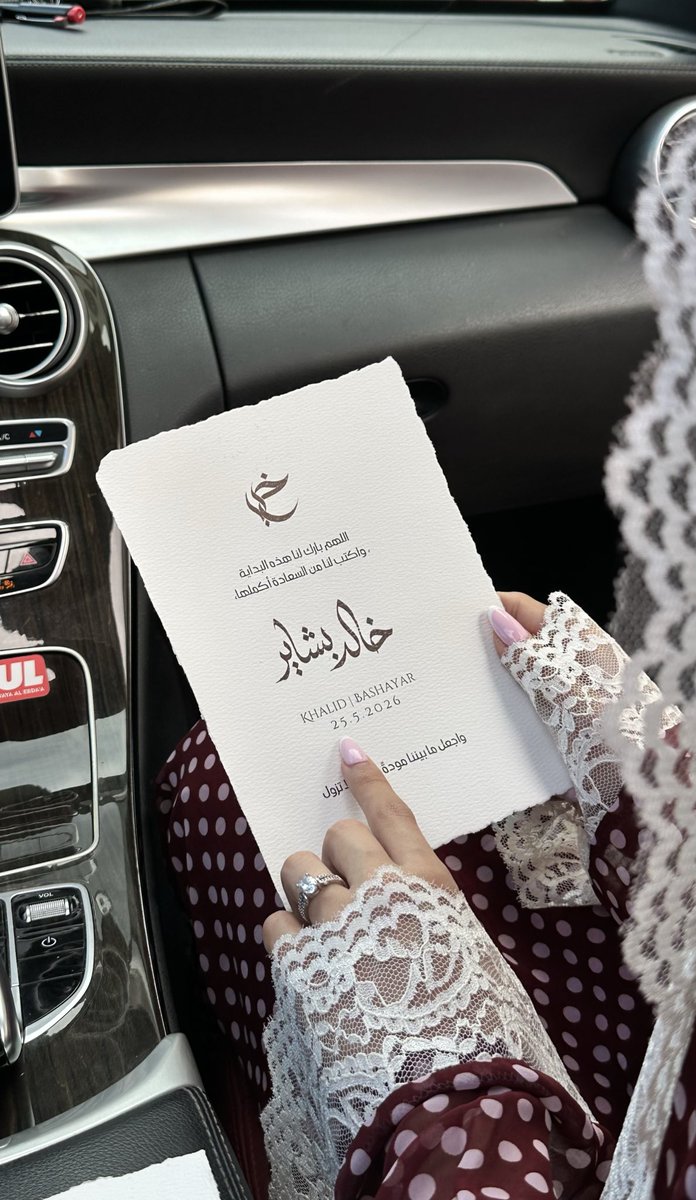 اللهم بارك لنا هذه البداية
، واكتب لنا من السعادة أكملها،
خالد بشاير
KHALID | BASHAYAR
25.5.2026
واجعل مابيننا مودةً تزول
A/C
UL
VOL